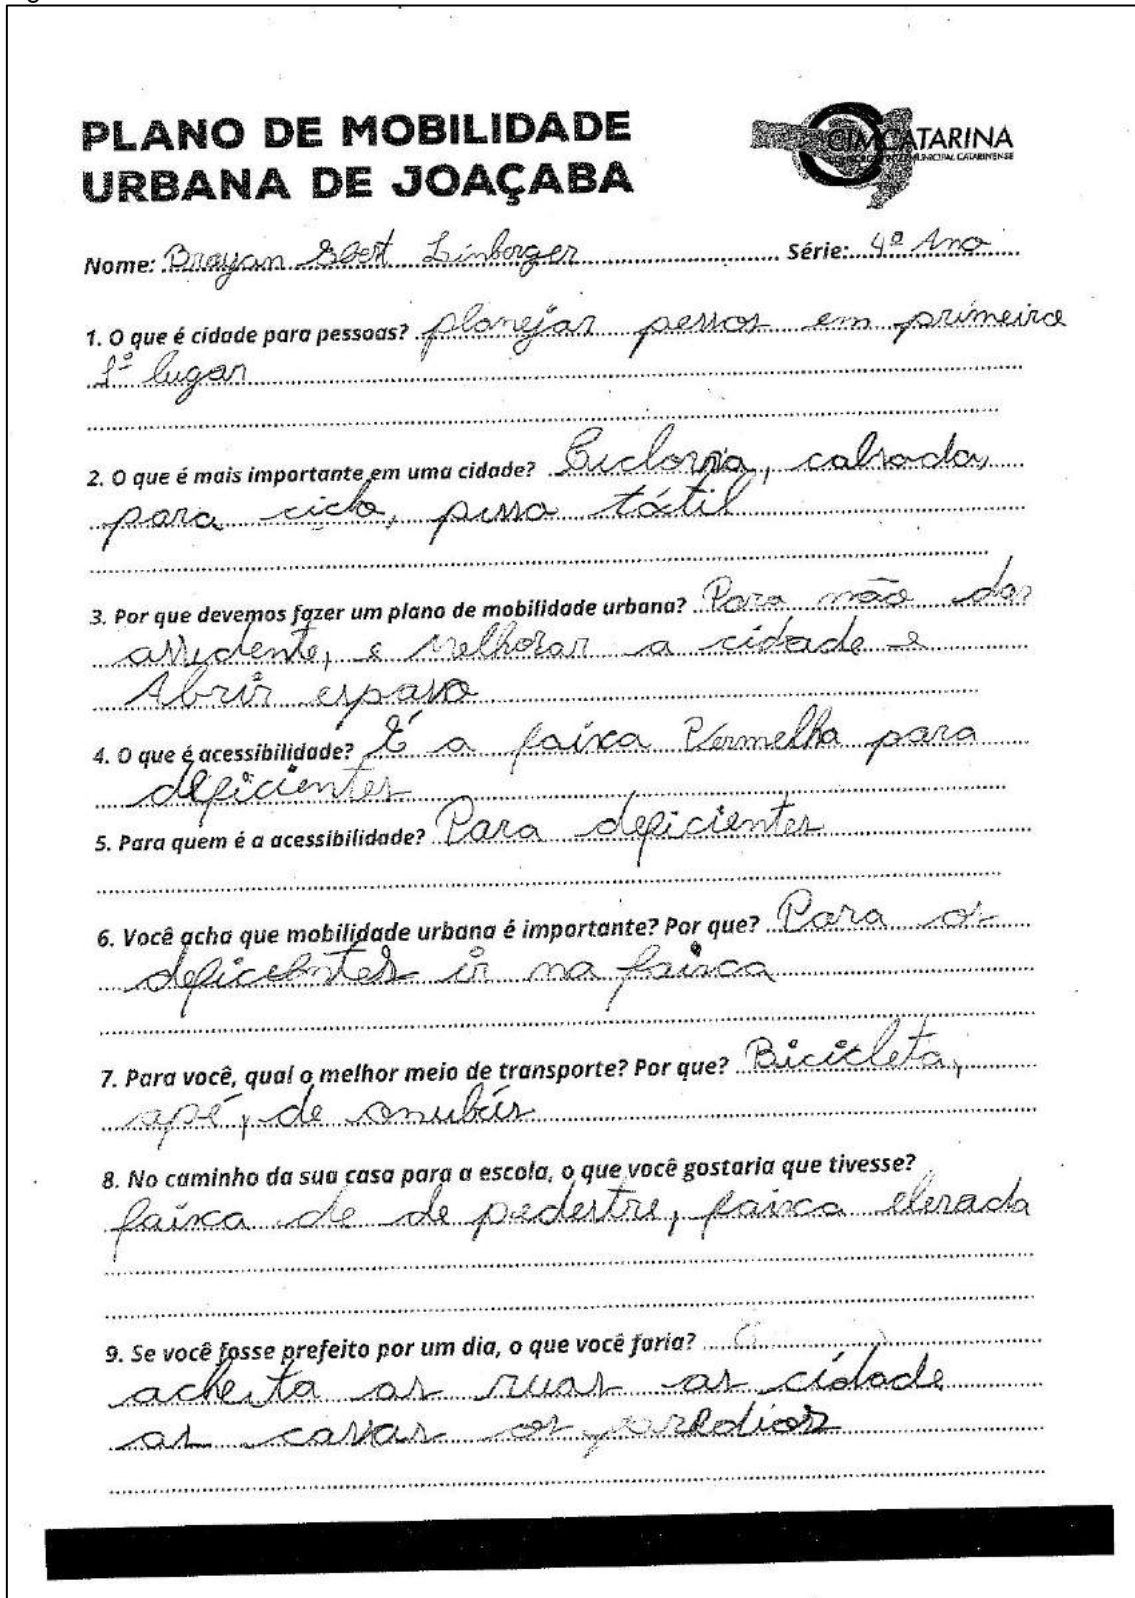 PLANO DE MOBILIDADE
URBANA DE JOAÇABA
CIMCATARINA
CONSÓRCIO INTERMUNICIPAL CATARINENSE
Nome: Brayan Ebert Linberger Série: 4º Ano
1. O que é cidade para pessoas? planejar pessos em primeira
1º lugar
2. O que é mais importante em uma cidade? Ciclovia, calsada,
para ciclo, pisso táctil
3. Por que devemos fazer um plano de mobilidade urbana? Para não dar
assidente, e melhorar a cidade e
Abrir espaso
4. O que é acessibilidade? É a faixa Vermelha para
deficientes
5. Para quem é a acessibilidade? Para deficientes
6. Você acha que mobilidade urbana é importante? Por que? Para os
deficentes ir na faixa
7. Para você, qual o melhor meio de transporte? Por que? Bicicleta,
apé, de onubús
8. No caminho da sua casa para a escola, o que você gostaria que tivesse?
faixa de de pedestre, faixa elevada
9. Se você fosse prefeito por um dia, o que você faria?
as ruas as cidade
as casas os